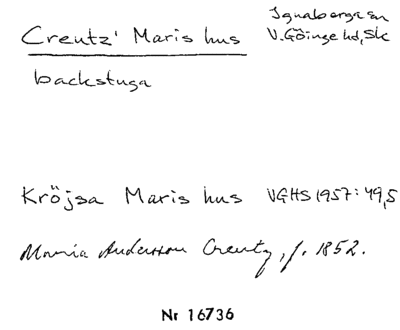 Creutz' Maris hus
Ignaberga sn
V.Göinge hd, Sk
backstuga
Kröjsa Maris hus VGHS 1957:49,5
Maria Andersson Creutz, f. 1852.
Nr 16736